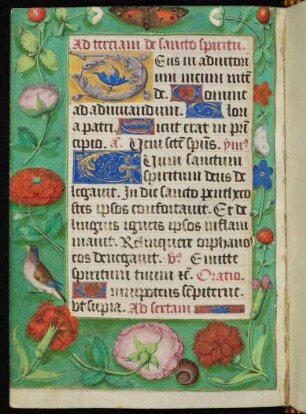 Ad terciam de sancto spiritu.
Deus in adiutori
um meum inten
de. Domine
ad adiuuandum. Glori
a patri. Sicut erat in prin
cipio. a. Veni sctẽ spũs. ymn9
Num sanctum
spiritum deus de
legauit. In die sancto penthecos
stes ipsos confortauit. Et de
linguis igneis ipsos inflam
mauit. Relinquere orphanos
eos denegauit. v9. Emitte
spiritum tuum &c. Oratio.
Omnipotens sempiterne.
vt supra. Ad sextam